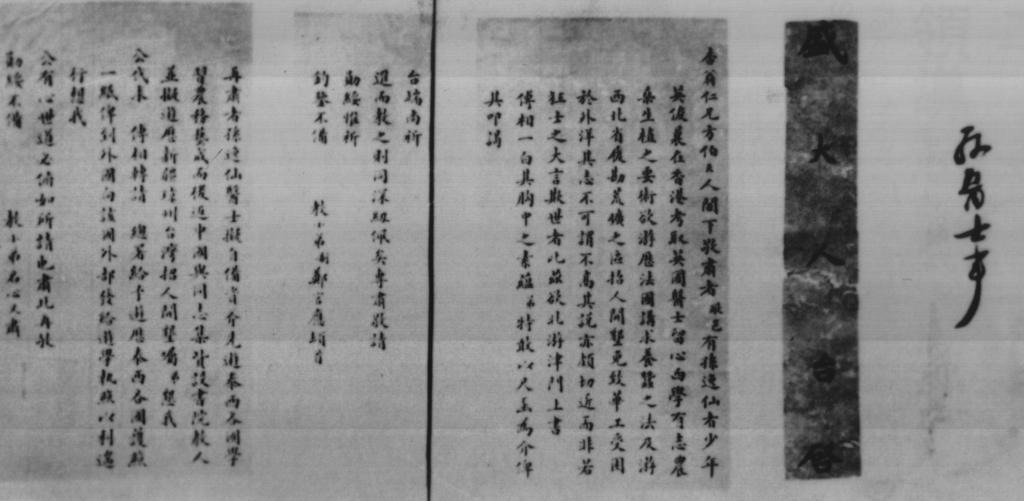 孫醫士事
盛大人台啓
杏翁仁兄方伯大人閣下敬肅者敝邑有孫逸仙者少年
英俊曩在香港考取英國醫士留心西學有志農
桑生植之要術欲游歷法國講求養蠶之法及游
西北省履勘荒曠之區招人開墾免致華工受困
於外洋其志不可謂不高其說亦頗切近而非若
狂士之大言欺世者比茲欲北游津門上書
傅相一白其胸中之素蘊弟特敢以尺函為介俾
其叩謁
台端尚祈
進而教之則同深紉佩矣專肅敬請
勛綏惟祈
鈞鑒不備
教小弟制鄭官應頓首
再肅者孫逸仙醫士擬自備資斧先遊泰西各國學
習農務藝成而後返中國與同志集貲設書院教人
並擬遊歷新疆瓊州台灣招人開墾囑弟懇我
公代求 傅相轉請 總署給予遊歷泰西各國護照
一紙俾到外國向該國外部發給遊學執照以利遄
行想我
公有心世道必俯如所請也肅此再敬
勛綏不備
教小弟名心又肅